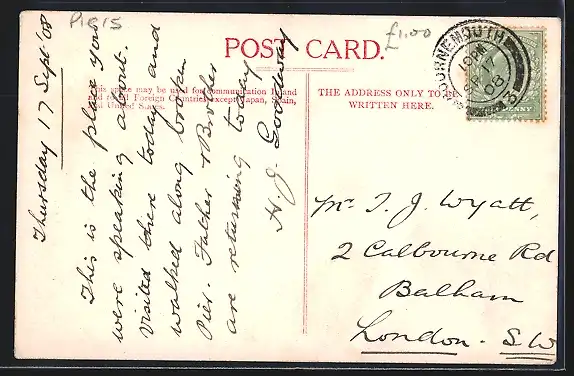 Piers
£1.00
POST CARD.
This space may be used for communication Inland
and to all Foreign Countries except Japan, Spain,
and United States.
THE ADDRESS ONLY TO BE
WRITTEN HERE.
BOURNEMOUTH
SP 17
08
3
Thursday 17 Sept '08
This is the place you
were speaking about.
Visited there today and
walked along broken
Pier. Father & Brother
are returning today
H. J. Goodway
Mr T. J. Wyatt,
2 Calbourne Rd
Balham
London. S.W